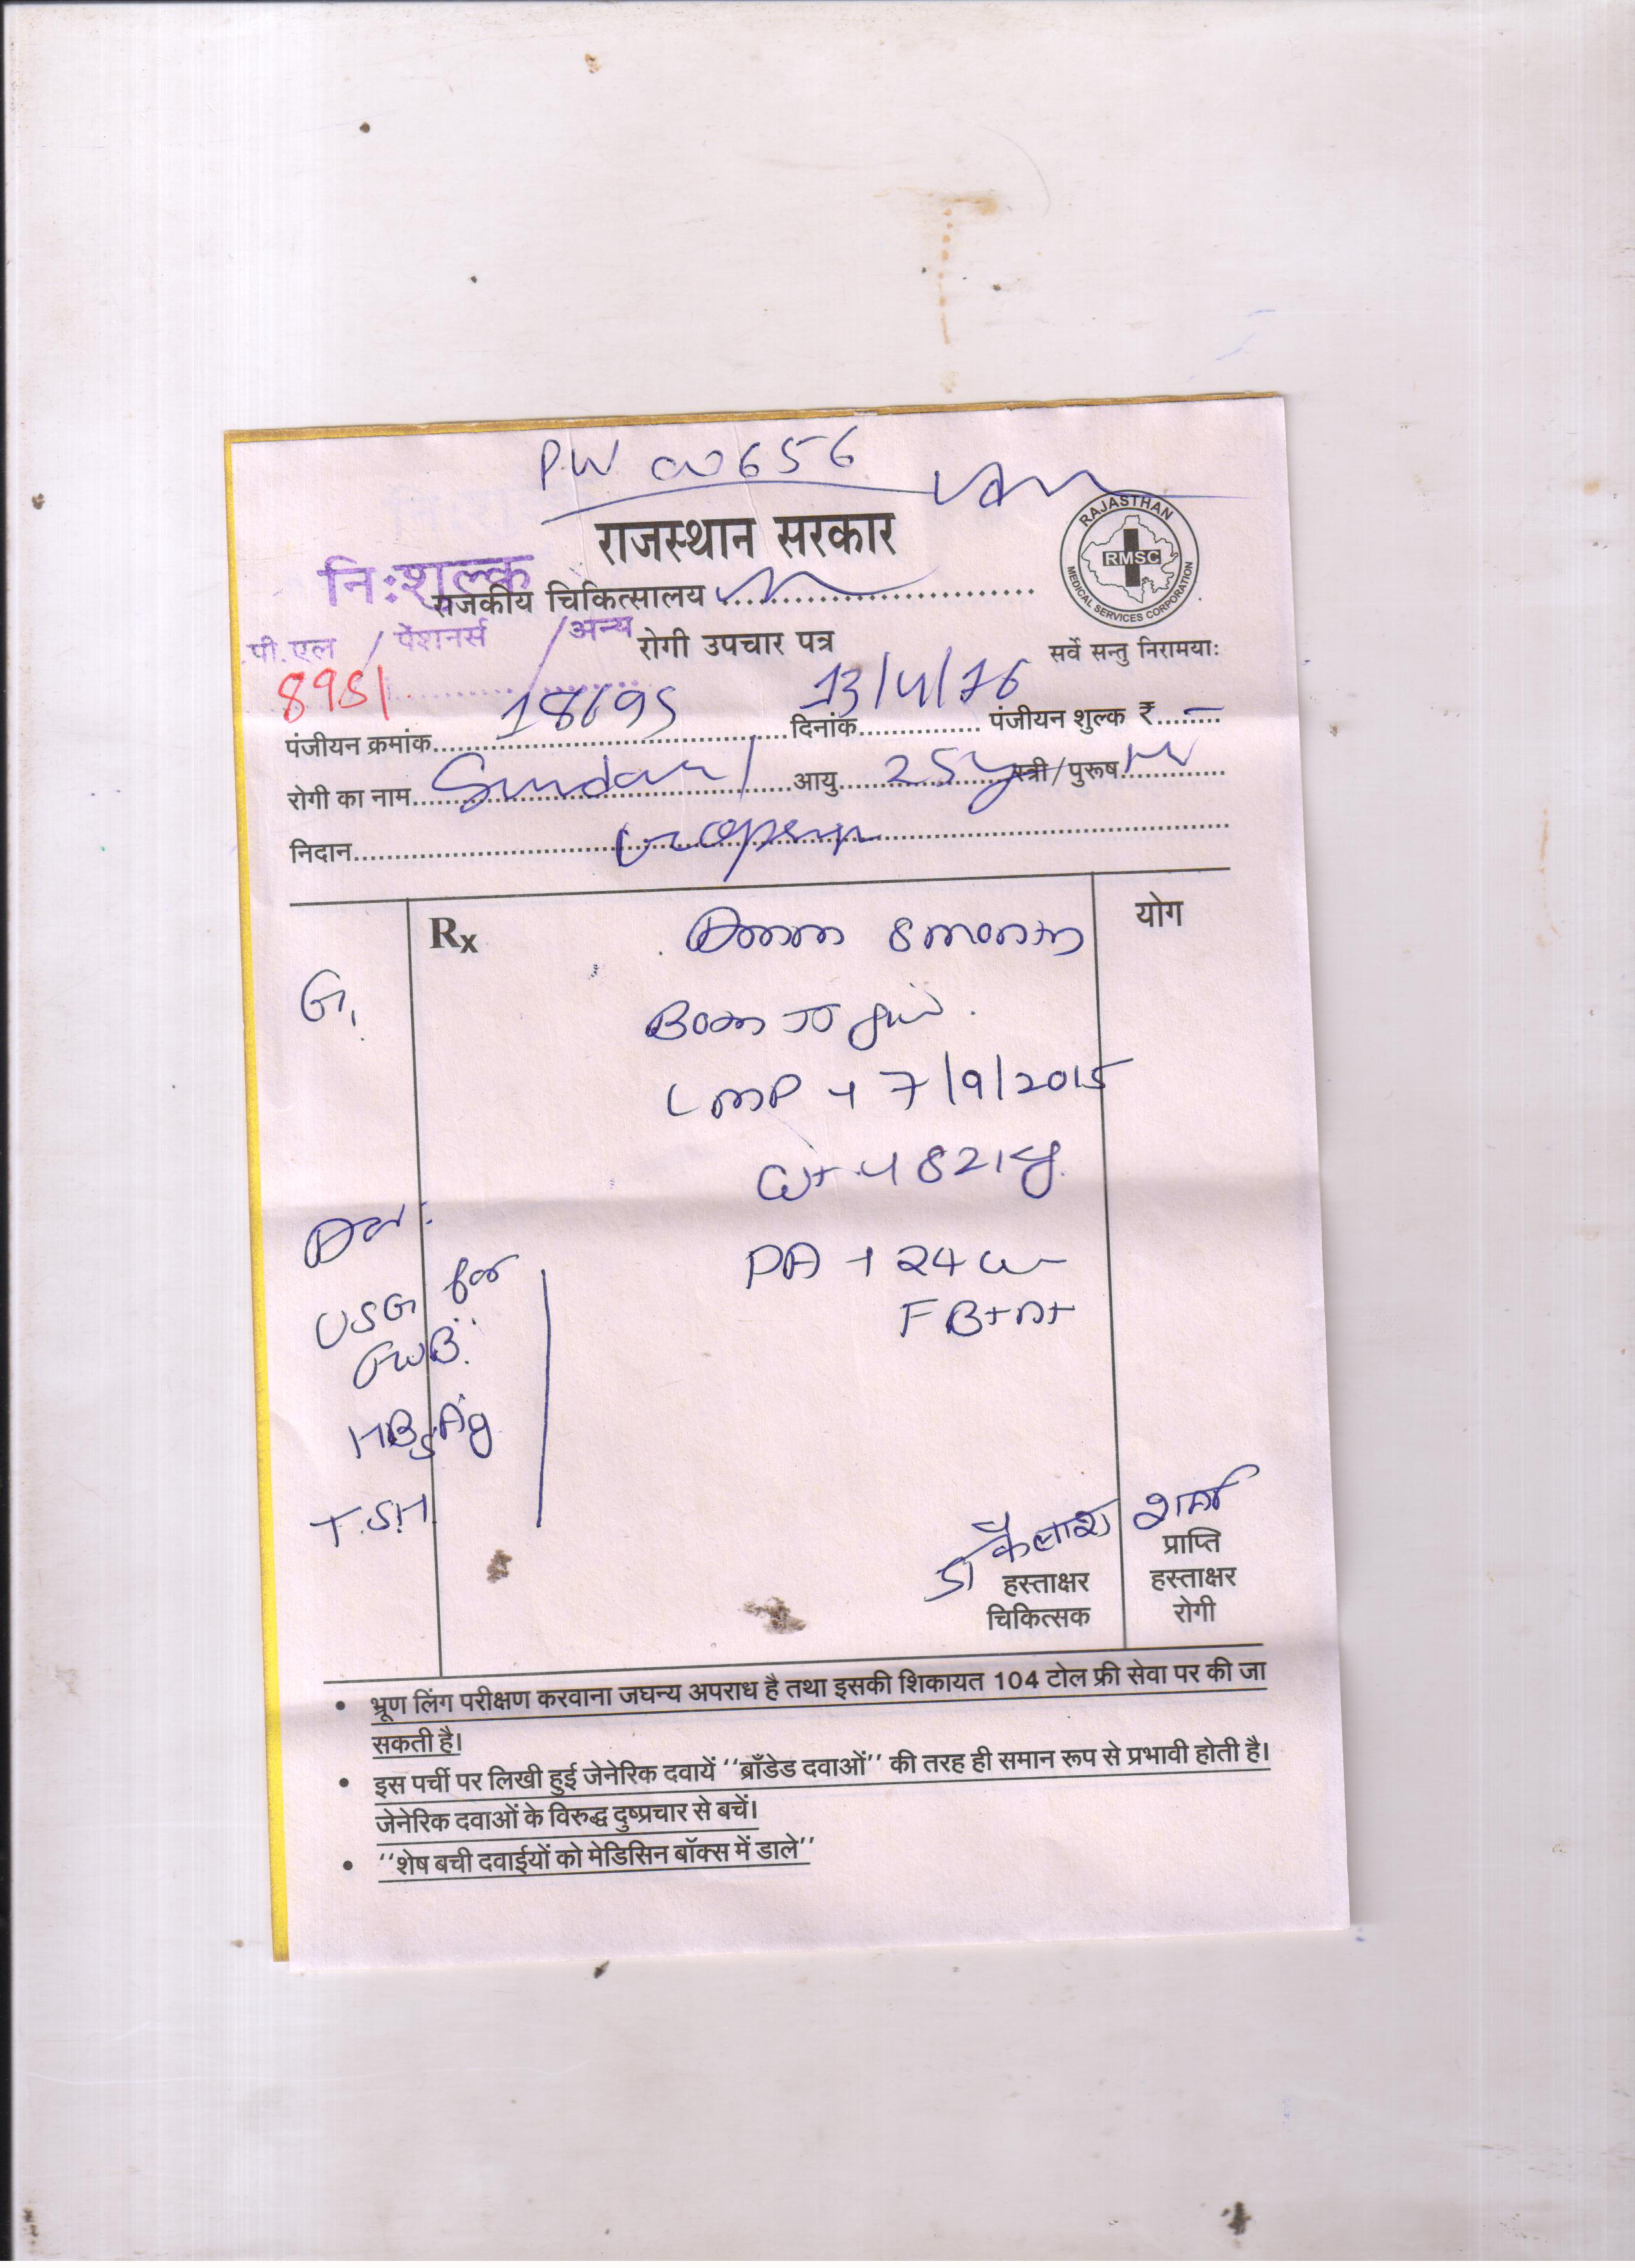 P.W 00656
राजस्थान सरकार
RAJASTHAN
RMSC
MEDICAL SERVICES CORPORATION
नि:शुल्क
राजकीय चिकित्सालय
पी.एल / पेंशनर्स / अन्य
रोगी उपचार पत्र
सर्वे सन्तु निरामया:
पंजीयन क्रमांक 18695 दिनांक 13/4/16 पंजीयन शुल्क ₹ -
रोगी का नाम आयु 25y स्त्री / पुरूष
निदान
Rx 8 month योग
G1
LMP → 7/9/2015
wt → 82 kg
PA → 24 w
USG for
FWB.
HBsAg
T.S.H
डा कैलाश शर्मा
हस्ताक्षर
चिकित्सक
प्राप्ति
हस्ताक्षर
रोगी
• भ्रूण लिंग परीक्षण करवाना जघन्य अपराध है तथा इसकी शिकायत 104 टोल फ्री सेवा पर की जा
सकती है।
• इस पर्ची पर लिखी हुई जेनेरिक दवायें ‘‘ब्राँडेड दवाओं’’ की तरह ही समान रूप से प्रभावी होती है।
जेनेरिक दवाओं के विरुद्ध दुष्प्रचार से बचें।
• ‘‘शेष बची दवाईयों को मेडिसिन बॉक्स में डाले’’